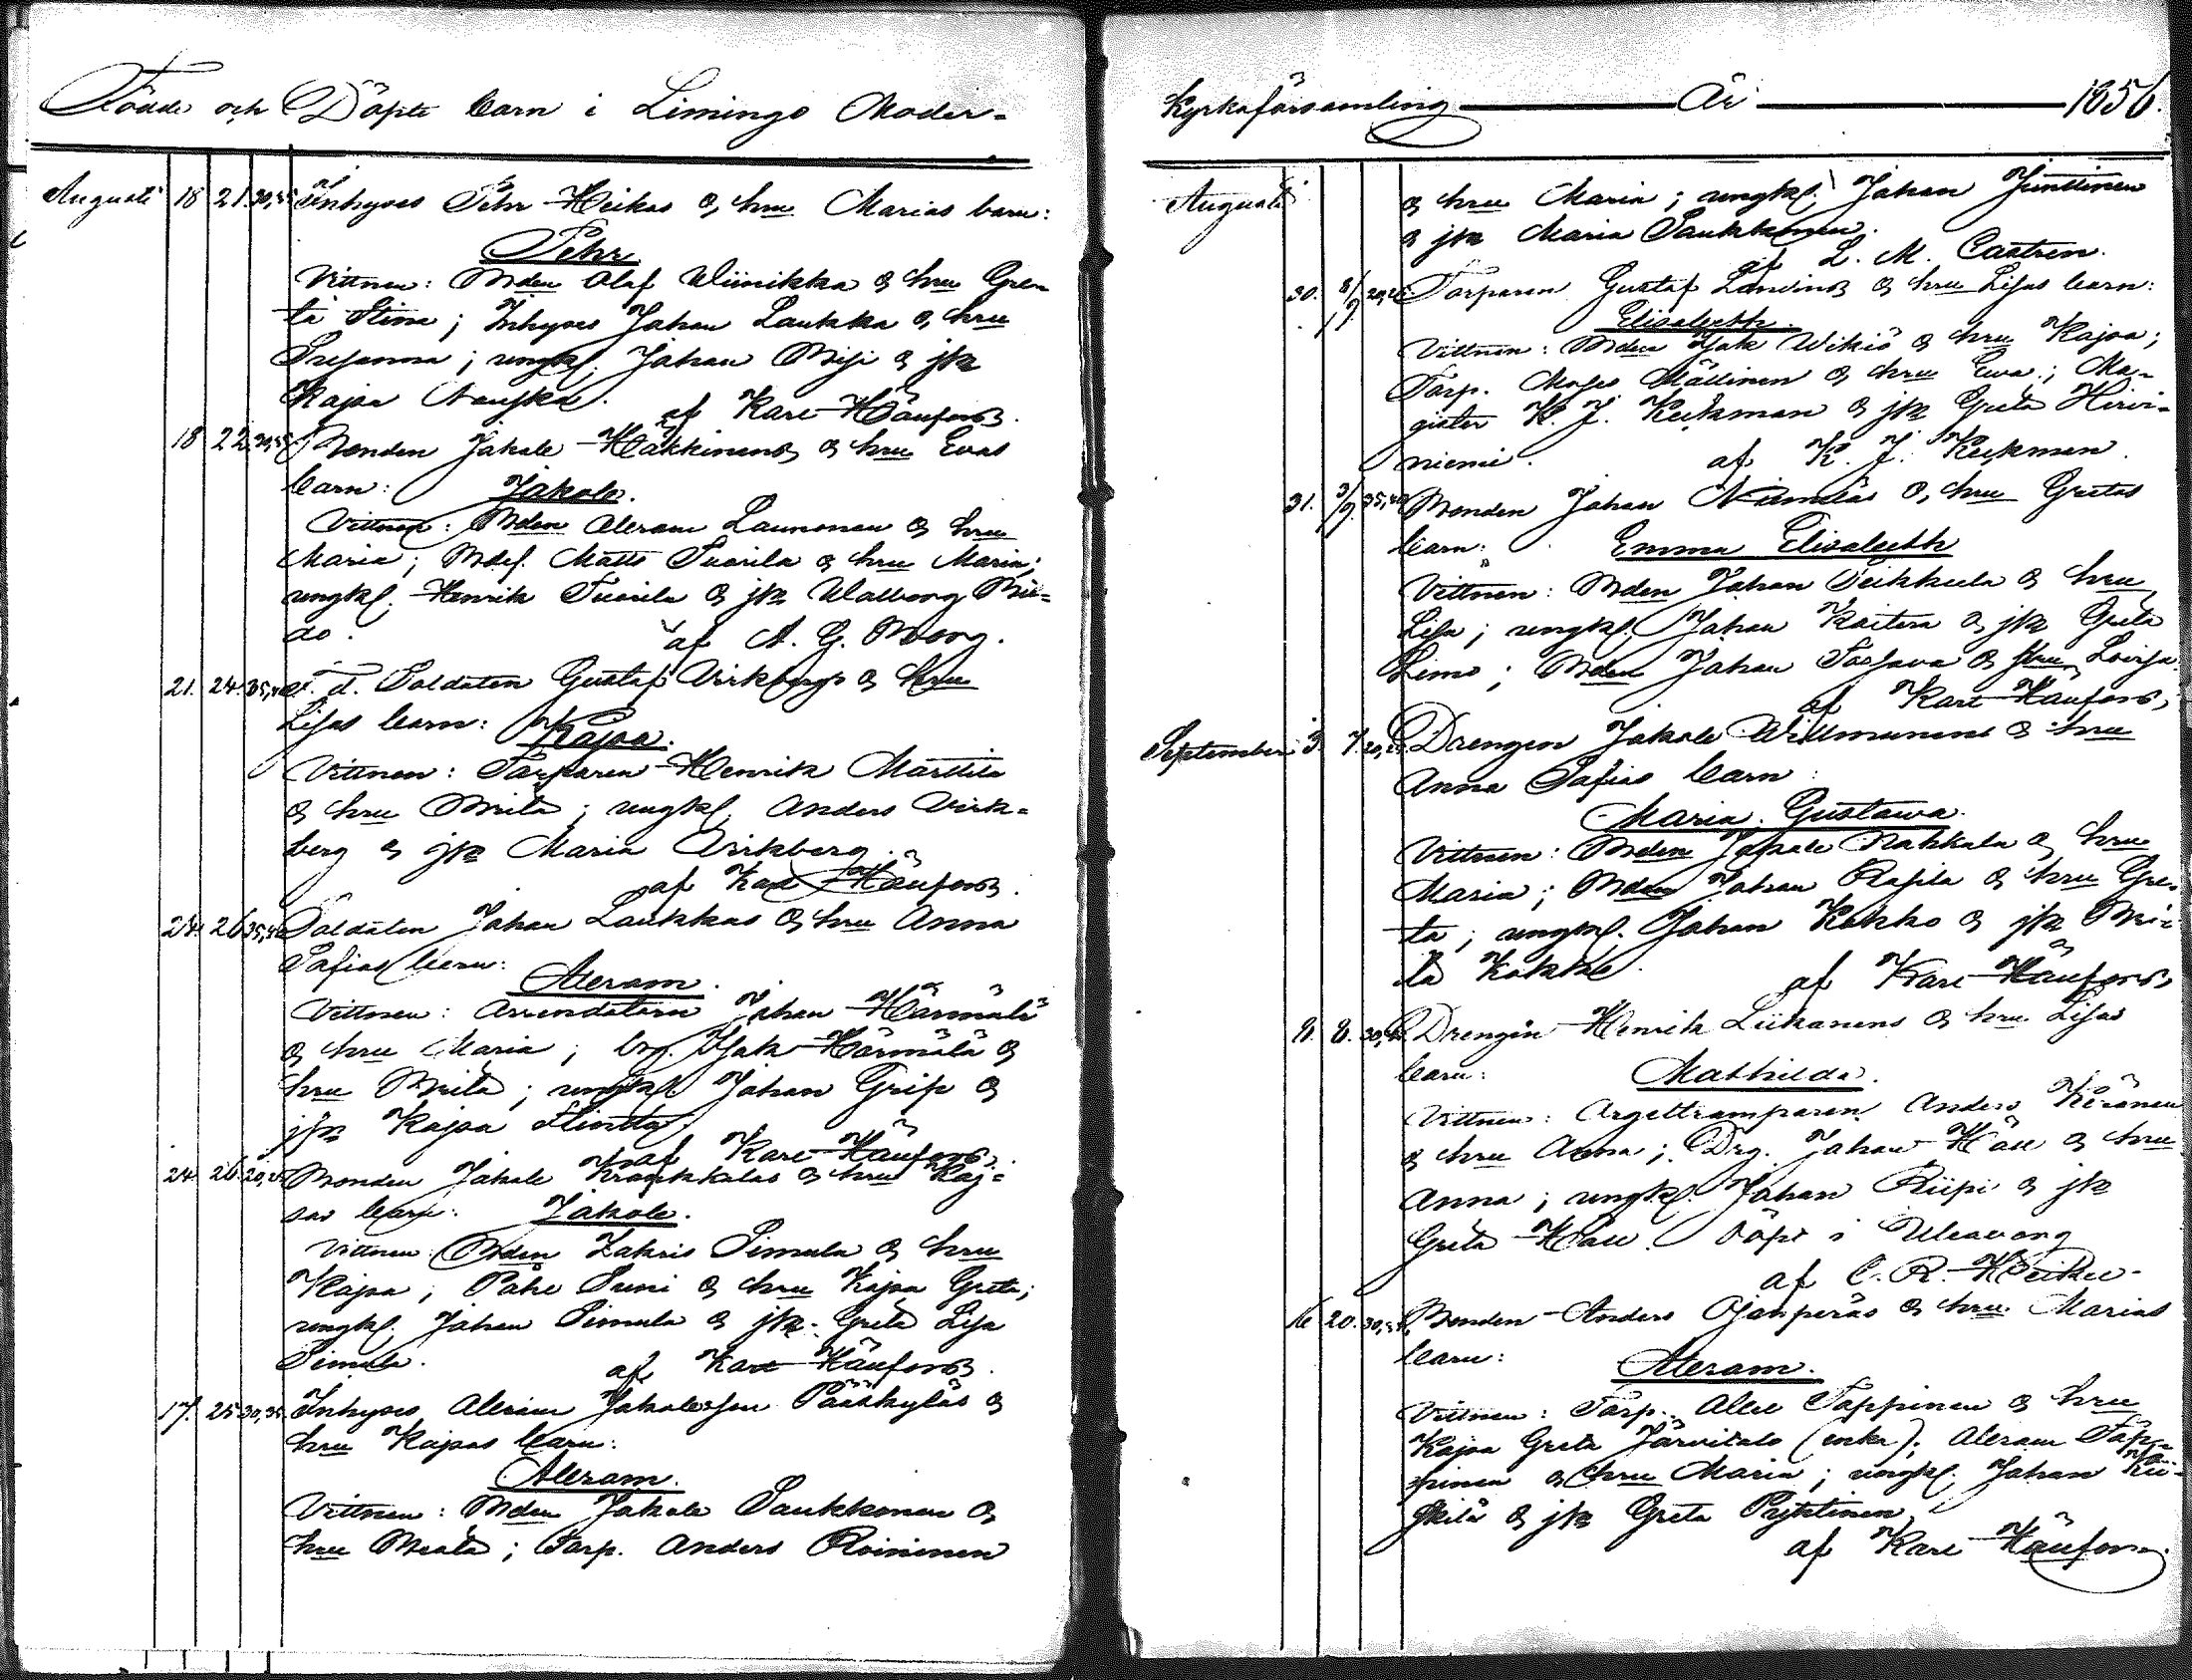 Födde och Döpte barn i Limingo Moder-
Augusti 18 21. 30,35 Inhyses Pehr Heikas & hru Marias barn:
Pehr
Vittnen: Bden Olof Wiinikka & hru Gre-
ta Stina; Inhyses Johan Laukka & hru
Susanna; ungkl. Johan Miji & jfr
Kajsa Nauska. af Karl Hänfors.
18 22. Bonden Jakob Häkkinens & hru Evas
barn: Jakob.
Vittnen: Bden Abram Launonen & hru
Maria; Bdes. Matts Tuorila & hru Maria;
ungkl. Henrik Tuorila & jfr Walborg
do. af A. G. Borg.
21. 24. 35,40 v. d. Soldaten Gustaf Virkbergs & hru
Lisas barn: Kajsa.
Vittnen: Torparen Henrik Marttila
& hru Brita; ungkl. Anders Virk-
berg & jfr Maria Virkberg.
af Karl Hänfors.
24. 26 35,40 Soldaten Johan Laukkas & hru Anna
Sofias barn:
Abram.
Vittnen: Arrendatorn Johan Härmälä
& hru Maria; Isak Härmälä &
hru Brita; ungkl. Johan Grip &
jfr Kajsa
af Karl Hänfors.
24. 26. 20,25 Bonden Jakob Krankkalas & hru Kaj-
sas barn: Jakob.
Vittnen: Bden Zakris Simula & hru
Kajsa; Påhl Suni & hru Kajsa Greta;
ungkl. Johan Simula & jfr. Greta Lisa
Simula. af Karl Hänfors.
17. 25 30,35 Inhyses Abram Jakobsson Pääkyläs &
hru Kajsas barn:
Abram.
Vittnen: Bden Jakob Saukkonen &
hru Beata; Torp. Anders Roininen
Kyrkoförsamling År 1856.
Augusti & hru Maria; ungkl. Johan Junttinen
& jfr Maria Saukkonen.
af L. M. Castren.
30. 8/9. 20,25 Torparen Gustaf & hru Lisas barn:
Elisabeth.
Vittnen: Bden Isak Wikiö & hru Kajsa;
Torp. Moses Mällinen & hru Eva; Ma-
gister K. J. Keckman & jfr Greta Hirvi-
niemi. af K. J. Keckman.
31. 3/9. 35,40 Bonden Johan & hru Gretas
barn: Emma Elisabeth
Vittnen: Bden Johan Veikkula & hru
Lisa; ungkl. Johan Kaitera & jfr Greta
Limo; Bden Johan Tossava & hru Lovisa.
af Karl Hänfors.
September 3. 7. 20,25 Drengen Jakob Wittmunens & hru
Anna Sofias barn:
Maria Gustawa.
Vittnen: Bden Jakob Nahkala & hru
Maria; Bden Johan Rasila & hru Gre-
ta; ungkl. Johan Kokko & jfr Bri-
ta Kokko. af Karl Hänfors
8. 8. Drengen Henrik Liikanens & hru Lisas
barn: Mathilda.
Vittnen: Orgeltramparen Anders Keränen
& hru Anna; Drg. Johan Häll & hru
Anna; ungkl. Johan Riipi & jfr
Greta Häll. Döpt i Uleaborg
af C. R. Heikel.
16 20. Bonden Anders Ojanperäs & hru Marias
barn: Abram.
Vittnen: Torp. Abel Toppinen & hru
Kajsa Greta Järvitalo (enka); Abram Top-
pinen & hru Maria; ungkl. Johan Kii-
skilä & jfr Greta Pyktinen,
af Karl Hänfors.